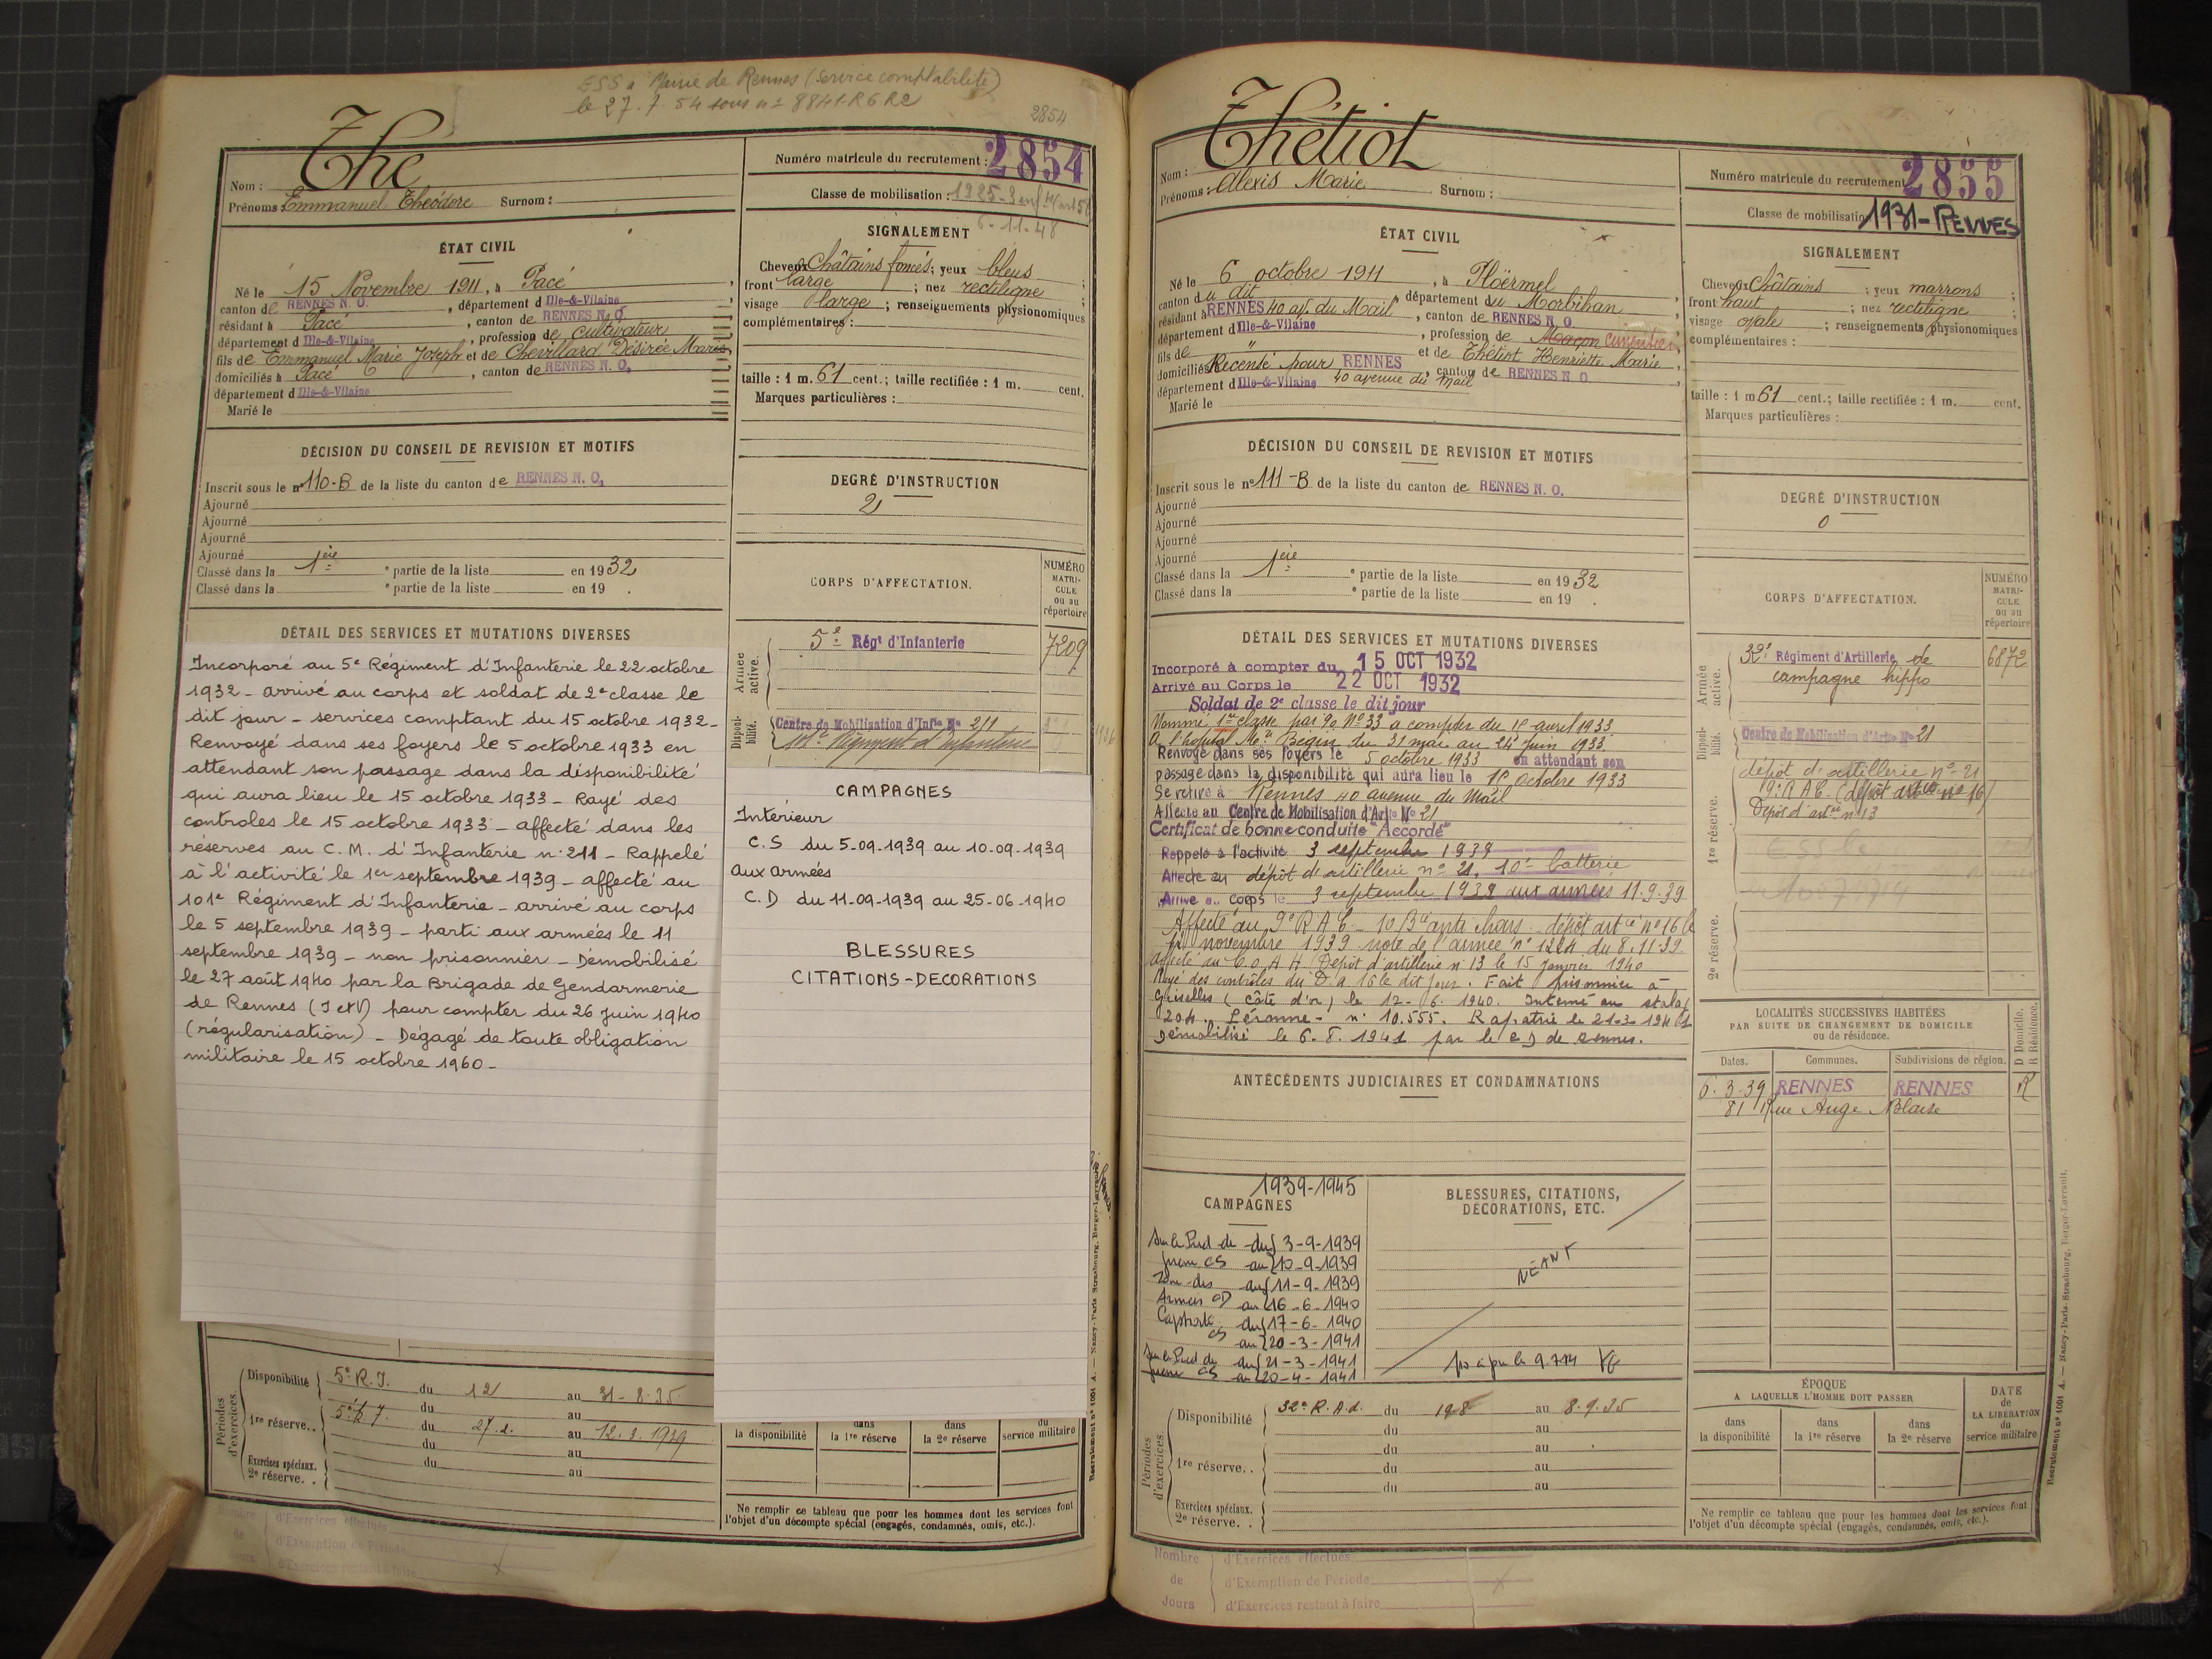 ESS à Mairie de Rennes (Service comptabilité)
le 27.7.54 sous n° 8841-R6 R2
2854
Nom : The
Prénoms : Emmanuel Théodore Surnom :
Numéro matricule du recrutement : 2854
Classe de mobilisation : 1925-3 enf
6-11-48
ÉTAT CIVIL
Né le 15 Novembre 1911, à Pacé
canton de RENNES N. O. , département d Ille-&-Vilaine
résidant à Pacé , canton de RENNES N. O.
département d Ille-&-Vilaine , profession de cultivateur
fils de Emmanuel Marie Joseph et de Chevillard Désirée Marie
domiciliés à Pacé , canton de RENNES N. O.
département d Ille-&-Vilaine
Marié le
SIGNALEMENT
Cheveux Châtains foncés ; yeux bleus ;
front large ; nez rectiligne
visage large ; renseignements physionomiques
complémentaires :
taille : 1 m. 61 cent.; taille rectifiée : 1 m. cent.
Marques particulières :
DÉCISION DU CONSEIL DE REVISION ET MOTIFS
Inscrit sous le n° 110-B de la liste du canton de RENNES N. O.
Ajourné
Ajourné
Ajourné
Ajourné
Classé dans la 1ère partie de la liste en 1932
Classé dans la partie de la liste en 19 .
DEGRÉ D'INSTRUCTION
2
CORPS D'AFFECTATION.
NUMÉRO
MATRI-
CULE
ou au
répertoire
Armée active.
5e Régt d'Infanterie 7209
Disponi-bilité.
Centre de Mobilisation d'Infie No 211
Régiment d'Infanterie
DÉTAIL DES SERVICES ET MUTATIONS DIVERSES
Incorporé au 5e Régiment d'Infanterie le 22 octobre
1932 - arrivé au corps et soldat de 2e classe le
dit jour - services comptant du 15 octobre 1932 -
Renvoyé dans ses foyers le 5 octobre 1933 en
attendant son passage dans la disponibilité
qui aura lieu le 15 octobre 1933 - Rayé des
controles le 15 octobre 1933 - affecté dans les
réserves au C. M. d'Infanterie n° 211 - Rappelé
à l'activité le 1er septembre 1939 - affecté au
101e Régiment d'Infanterie - arrivé au corps
le 5 septembre 1939 - parti aux armées le 11
septembre 1939 - non prisonnier - Démobilisé
le 27 août 1940 par la Brigade de Gendarmerie
de Rennes (I et V) pour compter du 26 juin 1940
(régularisation) - Dégagé de toute obligation
militaire le 15 octobre 1960 -
CAMPAGNES
Intérieur
C.S du 5-09-1939 au 10-09-1939
aux armées
C.D du 11-09-1939 au 25-06-1940
BLESSURES
CITATIONS-DECORATIONS
Périodes d'exercices.
Disponibilité 5e R.I. du 12 au 31-8-35
du au
1re réserve.. du 27.2. au 12.3.1939
du au
Exercices spéciaux. du au
2e réserve. .
dans dans dans du
la disponibilité la 1re réserve la 2e réserve service militaire
Ne remplir ce tableau que pour les hommes dont les services font
l'objet d'un décompte spécial (engagés, condamnés, omis, etc.).
Nombre d'Exercices effectués
de d'Exemption de Période
Jours d'Exercices restant à faire
Nom : Thétiot
Prénoms : Alexis Marie Surnom :
Numéro matricule du recrutement 2855
Classe de mobilisation 1931-RENNES
ÉTAT CIVIL
Né le 6 octobre 1911 , à Ploërmel
canton du dit , département du Morbihan
résidant à RENNES 40 av. du Mail , canton de RENNES N. O.
département d Ille-&-Vilaine , profession de Maçon cimentier
fils de " et de Thétiot Henriette Marie
domiciliés Recensé pour RENNES , canton de RENNES N. O.
département d Ille-&-Vilaine 40 avenue du Mail
Marié le
SIGNALEMENT
Cheveux châtains ; yeux marrons ;
front haut ; nez rectiligne ;
visage ovale ; renseignements physionomiques
complémentaires :
taille : 1 m 61 cent.; taille rectifiée : 1 m. cent.
Marques particulières :
DÉCISION DU CONSEIL DE REVISION ET MOTIFS
Inscrit sous le n° 111-B de la liste du canton de RENNES N. O.
Ajourné
Ajourné
Ajourné
Ajourné
Classé dans la 1ère partie de la liste en 1932
Classé dans la partie de la liste en 19 .
DEGRÉ D'INSTRUCTION
0
CORPS D'AFFECTATION.
NUMÉRO
MATRI-
CULE
ou au
répertoire
Armée active.
32e Régiment d'Artillerie de 6872
campagne hippo
Disponi-bilité.
Centre de Mobilisation d'Artie No 21
1re réserve.
dépôt d'artillerie n° 21
9e R A C (dépôt artie n° 16)
Dépôt d'artie n° 13
2e réserve.
DÉTAIL DES SERVICES ET MUTATIONS DIVERSES
Incorporé à compter du 15 OCT 1932
Arrivé au Corps le 22 OCT 1932
Soldat de 2e classe le dit jour
Nommé 1re classe par Do No 33 à compter du 1er avril 1933
A l'hôpital Mre Bégin du 31 mai au 24 juin 1933
Renvoyé dans ses foyers le 5 octobre 1933 en attendant son
passage dans la disponibilité qui aura lieu le 15 octobre 1933
Se retire à Rennes 40 avenue du Mail
Affecté au Centre de Mobilisation d'Artie No 21
Certificat de bonne conduite "Accordé"
Rappelé à l'activité 3 septembre 1939
Affecté au dépôt d'artillerie n° 21, 10e batterie
Arrivé au corps le 3 septembre 1939 aux armées 11.9.39
Affecté au 9e R A C - 10 Bie anti chars - dépôt artie n° 16 le
novembre 1939 note de l'armée n° 1224 du 8.11.39
Affecté au C.O.A.H Dépôt d'artillerie n° 13 le 15 janvier 1940
Rayé des contrôles du D.A 16 le dit jour. Fait prisonnier à
Griselles (Côte d'or) le 17-6-1940. Interné au stalag
204. Péronne - n° 10.555. Rapatrié le 21-3-1941
Démobilisé le 6.5.1941 par le CD de Rennes.
LOCALITÉS SUCCESSIVES HABITÉES
PAR SUITE DE CHANGEMENT DE DOMICILE
ou de résidence.
D Domicile.
R Résidence.
Dates. Communes. Subdivisions de région.
6-3-39 RENNES RENNES R
81 Rue Ange Blaize
ANTÉCÉDENTS JUDICIAIRES ET CONDAMNATIONS
1939-1945
CAMPAGNES
Sur le Pied de du 3-9-1939
guerre CS au 10-9-1939
Zone des du 11-9-1939
Armées CD au 16-6-1940
Captivité du 17-6-1940
CS au 20-3-1941
Sur le Pied de du 21-3-1941
guerre CS au 20-4-1941
BLESSURES, CITATIONS,
DÉCORATIONS, ETC.
NÉANT
Périodes d'exercices.
Disponibilité 32e R.A.d. du 19 8 au 8.9.35
du au
du au
1re réserve.. du au
du au
Exercices spéciaux.
2e réserve. .
ÉPOQUE
A LAQUELLE L'HOMME DOIT PASSER
DATE
de
LA LIBÉRATION
du
service militaire
dans dans dans
la disponibilité la 1re réserve la 2e réserve
Ne remplir ce tableau que pour les hommes dont les services font
l'objet d'un décompte spécial (engagés, condamnés, omis, etc.).
Nombre d'Exercices effectués
de d'Exemption de Période
Jours d'Exercices restant à faire
Recrutement n° 1001 A. — Nancy-Paris-Strasbourg, Berger-Levrault.